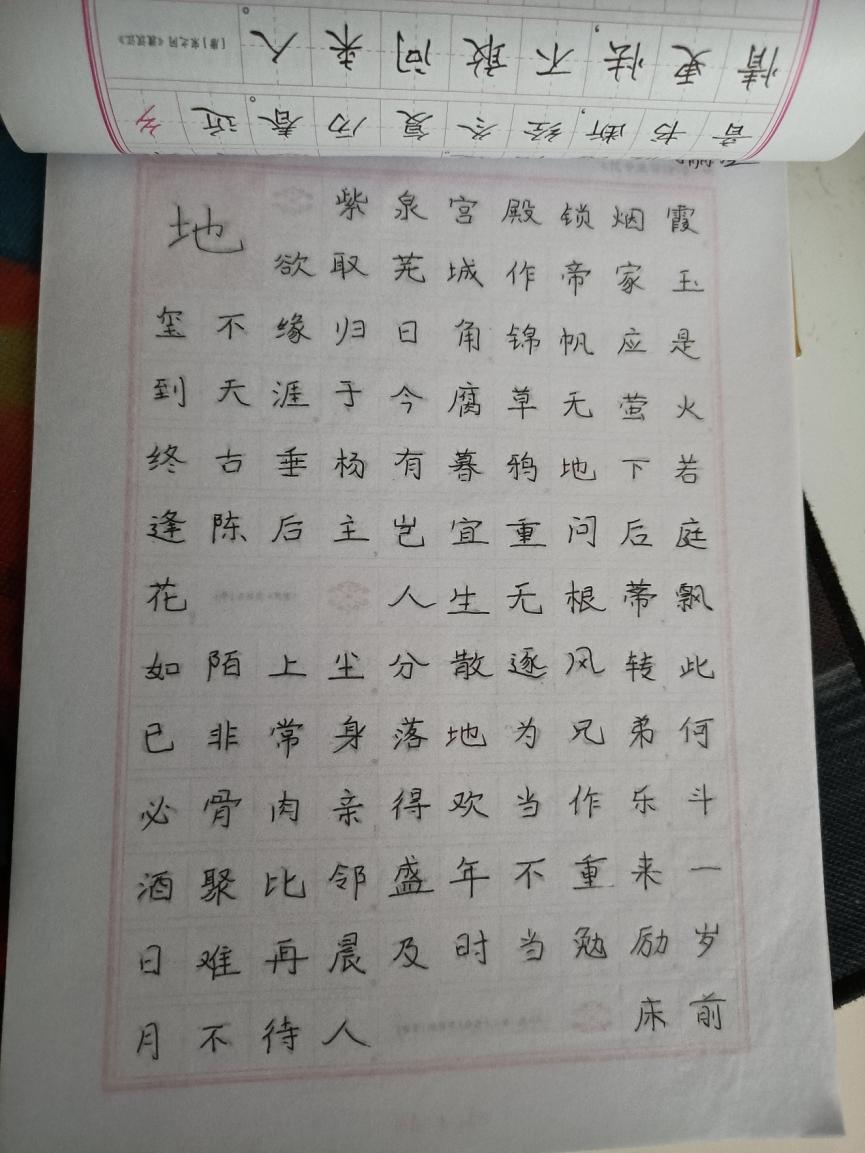 情更怯,不敢问来人。
[唐]宋之问《渡汉江》
音书断,经冬复历春。近乡
地
紫泉宫殿锁烟霞
欲取芜城作帝家玉
玺不缘归日角锦帆应是
到天涯于今腐草无萤火
终古垂杨有暮鸦地下若
逢陈后主岂宜重问后庭
花
人生无根蒂飘
如陌上尘分散逐风转此
已非常身落地为兄弟何
必骨肉亲得欢当作乐斗
酒聚比邻盛年不重来一
日难再晨及时当勉励岁
月不待人
床前